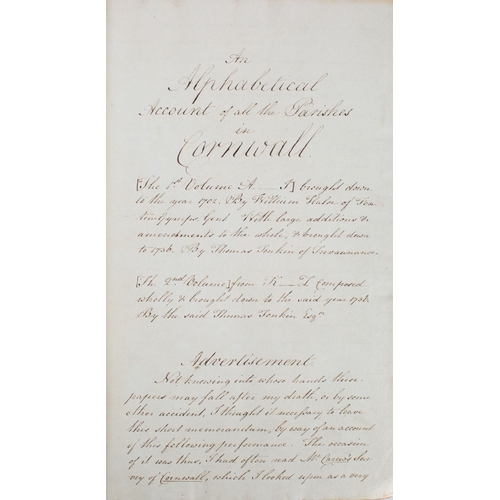 An
Alphabetical
Account of all the Parishes
in
Cornwall.
[The 1st Volume A__I] brought down
to the year 1702. By William Halse of Fen-
ton-Gymps, Gent. With large additions &
amendments to the whole, & brought down
to 1736. By Thomas Tonkin of Trevaunance.
[The 2nd Volume] from K__Z. Composed
wholly & brought down to the said year 1736.
By the said Thomas Tonkin Esqr.
Advertisement.
Not knowing into whose hands these
papers may fall after my death, or by some
other accident, I thought it necessary to leave
this short memorandum, by way of an account
of this following performance. The occasion
of it was thus, I had often read Mr Carew's Sur-
vey of Cornwall, which I looked upon as a very